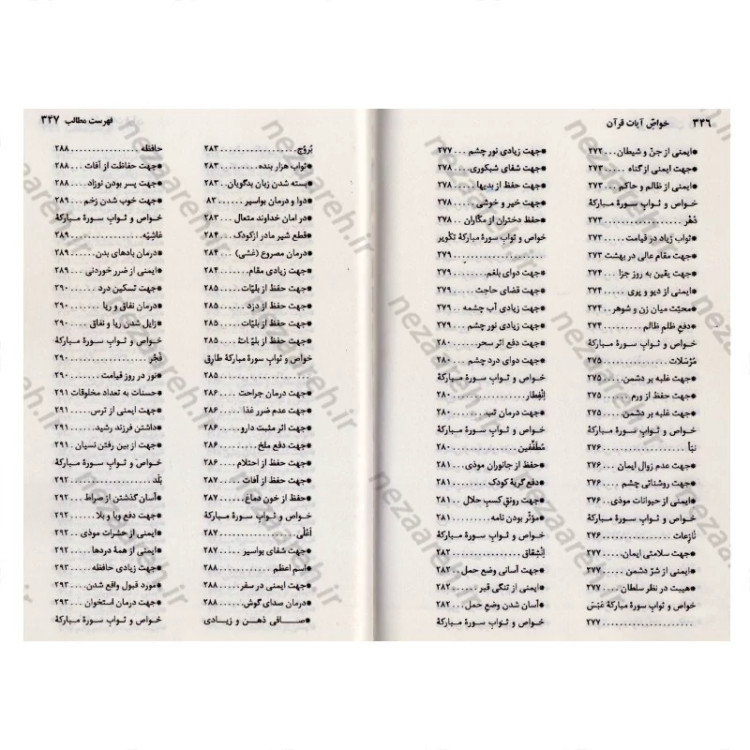 ۳۴۶ خواصّ آیات قرآن
●ایمنی از جنّ و شیطان ... ۲۷۲
●جهت ایمنی از گناه .... ۲۷۳
●ایمنی از ظالم و حاکم ... ۲۷۳
خواص و ثوابِ سورهٔ مبارکهٔ
دَهْر ................ ۲۷۳
●ثواب زیاد در قیامت ... ۲۷۳
●جهت مقام عالی در بهشت ۲۷۳
●جهت یقین به روز جزا .. ۲۷۴
●ایمنی از دیو و پری .... ۲۷۴
●محبّت میان زن و شوهر . ۲۷۴
●دفع ظلمِ ظالم ........ ۲۷۴
خواص و ثوابِ سورهٔ مبارکهٔ
مُرْسَلات ............ ۲۷۵
●جهت غلبه بر دشمن .... ۲۷۵
●جهت حفظ از ورم ...... ۲۷۵
●جهت غلبه بر دشمن .... ۲۷۵
خواص و ثوابِ سورهٔ مبارکهٔ
نَبَأ ................ ۲۷۶
●جهت عدم زوال ایمان ... ۲۷۶
●جهت روشنائی چشم .... ۲۷۶
●ایمنی از حیوانات موذی .. ۲۷۶
خواص و ثوابِ سورهٔ مبارکهٔ
نازِعات ............. ۲۷۶
●جهت سلامتی ایمان .... ۲۷۷
●ایمنی از شرّ دشمن ..... ۲۷۷
●هیبت در نظر سلطان ... ۲۷۷
خواص و ثوابِ سورهٔ مبارکهٔ عَبَسَ
.................... ۲۷۷
●جهت زیادی نور چشم ... ۲۷۷
●جهت شفای شبکوری .... ۲۷۸
●جهت حفظ از بدیها ..... ۲۷۸
●جهت خیر و خوشی ..... ۲۷۸
●حفظ دختران از مکّاران .. ۲۷۸
خواص و ثوابِ سورهٔ مبارکهٔ تکْویر
.................... ۲۷۹
●جهت دوای بلغم ....... ۲۷۹
●جهت قضای حاجت .... ۲۷۹
●جهت زیادی آب چشمه .. ۲۷۹
●جهت زیادی نور چشم ... ۲۷۹
●جهت دفع اثر سحر ..... ۲۸۰
●جهت دوای درد چشم ... ۲۸۰
خواص و ثوابِ سورهٔ مبارکهٔ
اِنْفِطار .............. ۲۸۰
●جهت درمان تب ....... ۲۸۰
خواص و ثوابِ سورهٔ مبارکهٔ
مُطَفِّفین ............. ۲۸۰
●حفظ از جانوران موذی ... ۲۸۱
●دفع گریهٔ کودک ....... ۲۸۱
●جهت رونق کسب حلال .. ۲۸۱
●مؤثّر بودن نامه ........ ۲۸۱
خواص و ثوابِ سورهٔ مبارکهٔ
اِنْشِقاق .............. ۲۸۲
●جهت آسانی وضع حمل . ۲۸۲
●ایمنی از تنگی قبر ...... ۲۸۲
●آسان شدن وضع حمل .. ۲۸۲
خواص و ثوابِ سورهٔ مبارکهٔ
فهرست مطالب ۳۴۷
بُروُج ................ ۲۸۳
●ثواب هزار بنده ........ ۲۸۳
●بسته شدن زبان بدگویان . ۲۸۳
●دوا و درمان بواسیر ..... ۸۳
●در امان خداوند متعال ... ۲۸۳
●قطع شیر مادر ازکودک ... ۲۸۴
●درمان مصروع (غشی) ... ۲۸۴
●جهت زیادی مقام ...... ۲۸۴
●جهت حفظ از بلیّات .... ۲۸۵
●جهت حفظ از دزد ...... ۲۸۵
●جهت حفظ از بلیّات .... ۲۸۵
●جهت حفظ از بلیّات .... ۲۸۵
خواص و ثوابِ سورهٔ مبارکهٔ طارِق
.................... ۲۸۵
●جهت درمان جراحت .... ۲۸۶
●جهت عدم ضرر غذا .... ۲۸۶
●جهت اثر مثبت دارو .... ۲۸۶
●جهت دفع ملخ ........ ۲۸۶
●جهت حفظ از احتلام .... ۲۸۶
●جهت حفظ از آفات ..... ۲۸۷
●حفظ از خون دماغ ..... ۲۸۷
خواص و ثوابِ سورهٔ مبارکهٔ
اَعْلی ............... ۲۸۷
●جهت شفای بواسیر ..... ۲۸۷
●اسم اعظم ............ ۲۸۸
●جهت ایمنی در سفر .... ۲۸۸
●درمان صدای گوش ..... ۲۸۸
●صافی ذهن و زیادی
حافظه ............... ۲۸۸
●جهت حفاظت از آفات .. ۲۸۸
●جهت پسر بودن نوزاد ... ۲۸۸
●جهت خوب شدن زخم .. ۲۸۹
خواص و ثوابِ سورهٔ مبارکهٔ
غاشِیَه .............. ۲۸۹
●درمان بادهای بدن ..... ۲۸۹
●ایمنی از ضرر خوردنی ... ۲۸۹
●جهت تسکین درد ...... ۲۹۰
●درمان نفاق و ریا ...... ۲۹۰
●زایل شدن ریا و نفاق ... ۲۹۰
خواص و ثوابِ سورهٔ مبارکهٔ
فَجْر ................ ۲۹۰
●نور در روز قیامت ...... ۲۹۰
●حسنات به تعداد مخلوقات ۲۹۱
●جهت ایمنی از ترس .... ۲۹۱
●داشتن فرزند رشید ...... ۲۹۱
●جهت از بین رفتن نسیان . ۲۹۱
خواص و ثوابِ سورهٔ مبارکهٔ
بَلَد ................. ۲۹۲
●آسان گذشتن از صراط ... ۲۹۲
●جهت دفع وبا و بلا ..... ۲۹۲
●ایمنی از حشرات موذی .. ۲۹۲
●ایمنی از همهٔ دردها .... ۲۹۲
●جهت زیادی حافظه .... ۲۹۳
●مورد قبول واقع شدن ... ۲۹۳
●جهت درمان استخوان ... ۲۹۳
خواص و ثوابِ سورهٔ مبارکهٔ
nezaareh.ir